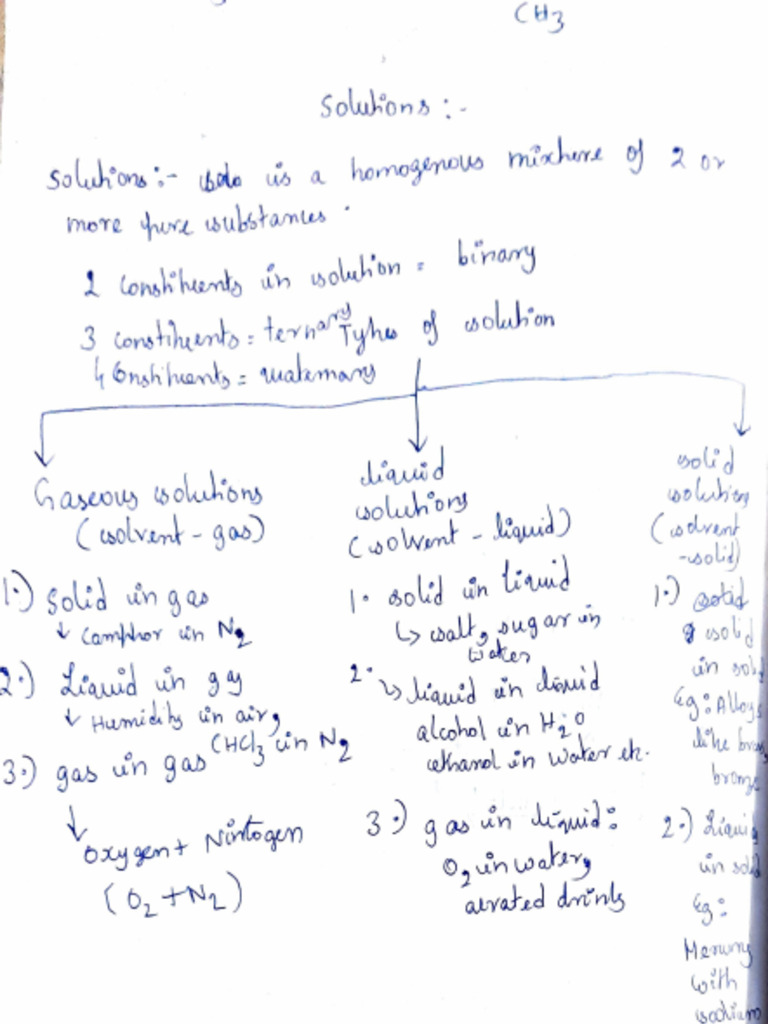 CH3
Solutions :-
Solutions :- is a homogenous mixture of 2 or
more pure substances.
2 constituents in solution = binary
3 constituents = ternary
4 Constituents = quaternary
Types of solution
Gaseous solutions
(solvent - gas)
1.) Solid in gas
↓ Camphor in N2
2.) Liquid in gas
↓ Humidity in air,
CHCl3 in N2
3.) gas in gas
↓
Oxygen + Nintogen
(O2 + N2)
liquid
solutions
(solvent - liquid)
1. solid in liquid
↳ salt, sugar in
water
2. ↳ liquid in liquid
alcohol in H2O
ethanol in water etc.
3.) gas in liquid:
O2 in water,
aerated drinks
solid
solutions
(solvent
-solid)
1.)
solid
in solid
Eg: Alloys
like brass,
bronze
2.) Liquid
in solid
Eg:
Mercury
with
sodium